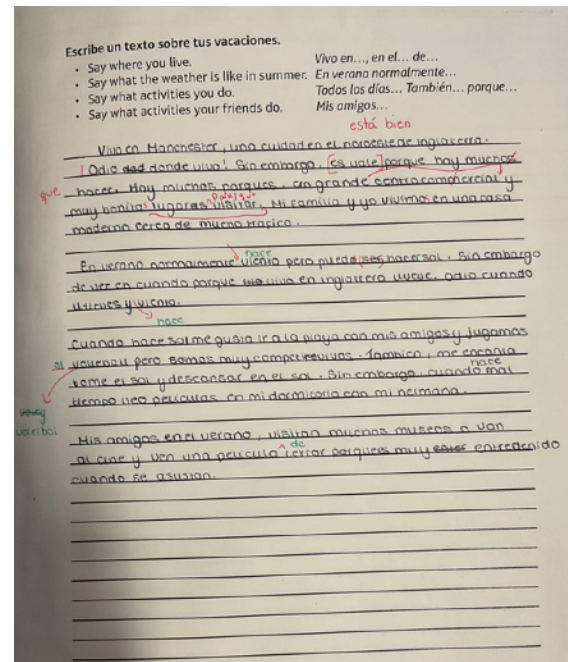 Escribe un texto sobre tus vacaciones.
• Say where you live. Vivo en…, en el… de…
• Say what the weather is like in summer. En verano normalmente…
• Say what activities you do. Todos los días… También… porque…
• Say what activities your friends do. Mis amigos…
está bien
Vivo en Manchester, una cuidad en el noroeste de inglaterra.
¡Odio donde vivo! Sin embargo, [es vale] porque hay muchos
que hacer. Hay muchos parques, un grande centro commercial y
muy bonitas lugares visitar. Mi familia y yo vivimos en una casa
moderna cerca de mucho trafico.
hace
En verano normalmente viento pero puede ser hacer sol. Sin embargo
de vez en cuando porque vivo en inglaterra llueve. Odio cuando
llueves y viento.
hace
Cuando hace sol me gusta ir a la playa con mis amigas y jugamos
al pero somos muy También, me encanta
hace
tome el sol y descansar en el sol. Sin embargo, cuando mal
tiempo veo películas en mi dormitorio con mi hermana.
voleibol
Mis amigos en el verano, visitan muchas museos o van
de
al cine y ven una película terror porque es muy entretenido
cuando se asustan.